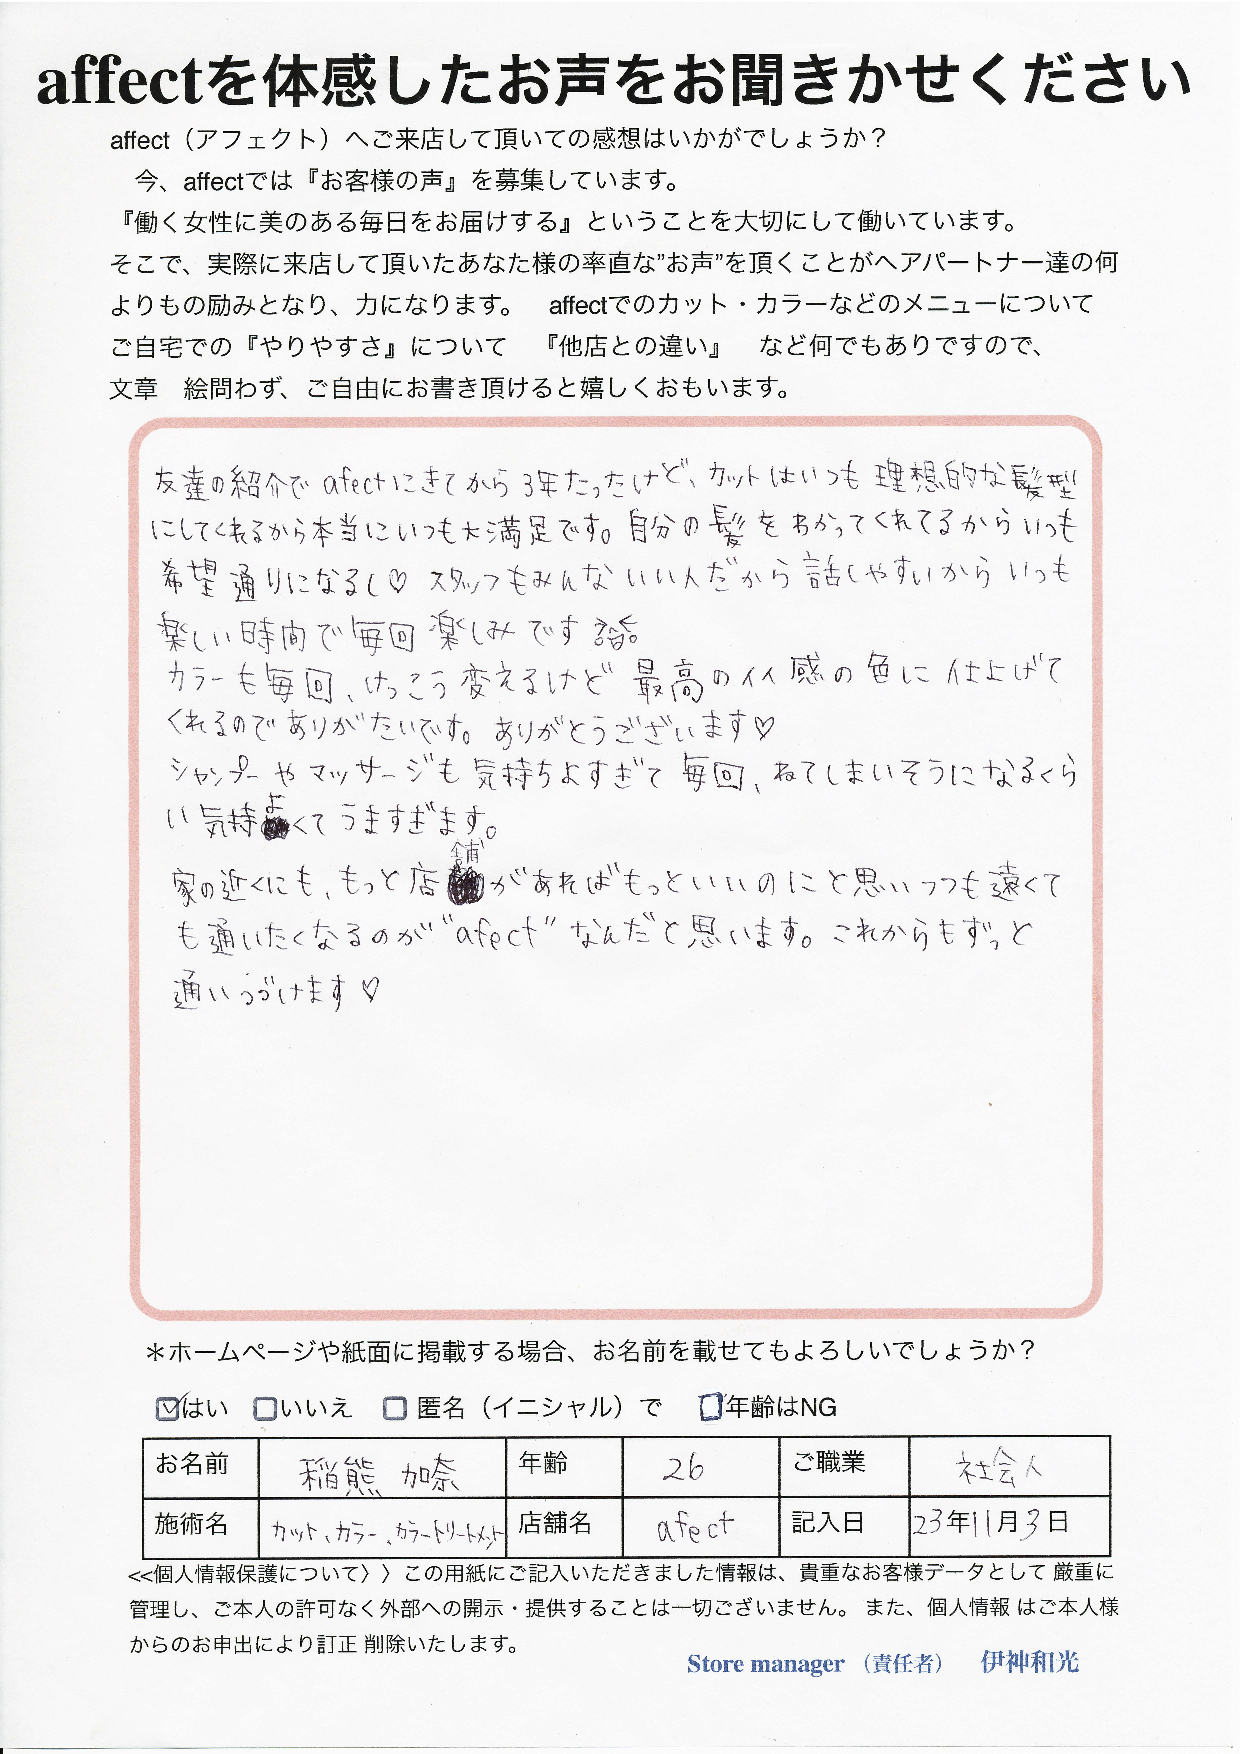 affectを体感したお声をお聞きかせください
affect（アフェクト）へご来店して頂いての感想はいかがでしょうか？
今、affectでは『お客様の声』を募集しています。
『働く女性に美のある毎日をお届けする』ということを大切にして働いています。
そこで、実際に来店して頂いたあなた様の率直な”お声”を頂くことがヘアパートナー達の何
よりもの励みとなり、力になります。　affectでのカット・カラーなどのメニューについて
ご自宅での『やりやすさ』について　『他店との違い』　など何でもありですので、
文章　絵問わず、ご自由にお書き頂けると嬉しくおもいます。
友達の紹介でafectにきてから3年たったけど、カットはいつも理想的な髪型
にしてくれるから本当にいつも大満足です。自分の髪をわかってくれてるからいつも
希望通りになるし♡ スタッフもみんないい人だから話しやすいからいつも
楽しい時間で毎回楽しみです
カラーも毎回、けっこう変えるけど最高のイイ感の色に仕上げて
くれるのでありがたいです。ありがとうございます♡
シャンプーやマッサージも気持ちよすぎて毎回、ねてしまいそうになるくら
い気持よくてうますぎます。
家の近くにも、もっと店舗があればもっといいのにと思いつつも遠くて
も通いたくなるのが“afect”なんだと思います。これからもずっと
通いつづけます♡
＊ホームページや紙面に掲載する場合、お名前を載せてもよろしいでしょうか？
☑はい　□いいえ　□ 匿名（イニシャル）で　□年齢はNG
お名前 稲熊 加奈 年齢 26 ご職業 社会人
施術名 カット、カラー、カラートリートメント 店舗名 afect 記入日 23年11月3日
<<個人情報保護について〉〉この用紙にご記入いただきました情報は、貴重なお客様データとして 厳重に
管理し、ご本人の許可なく外部への開示・提供することは一切ございません。 また、個人情報 はご本人様
からのお申出により訂正 削除いたします。
Store manager （責任者）　伊神和光